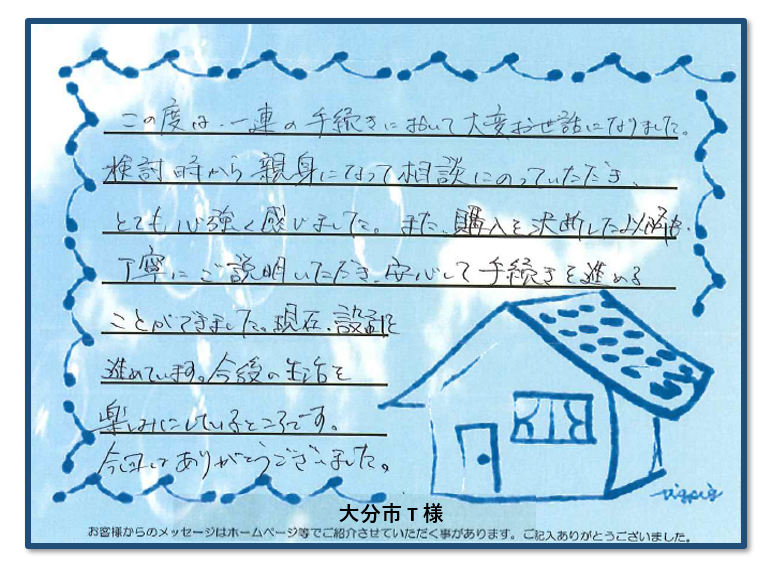 この度は、一連の手続きにおいて大変お世話になりました。
検討時から親身になって相談にのっていただき、
とても心強く感じました。また、購入を決断した以降も、
丁寧にご説明いただき、安心して手続きを進める
ことができました。現在、設計を
進めています。今後の生活を
楽しみにしているところです。
今回はありがとうございました。
大分市T様
お客様からのメッセージはホームページ等でご紹介させていただく事があります。ご記入ありがとうございました。